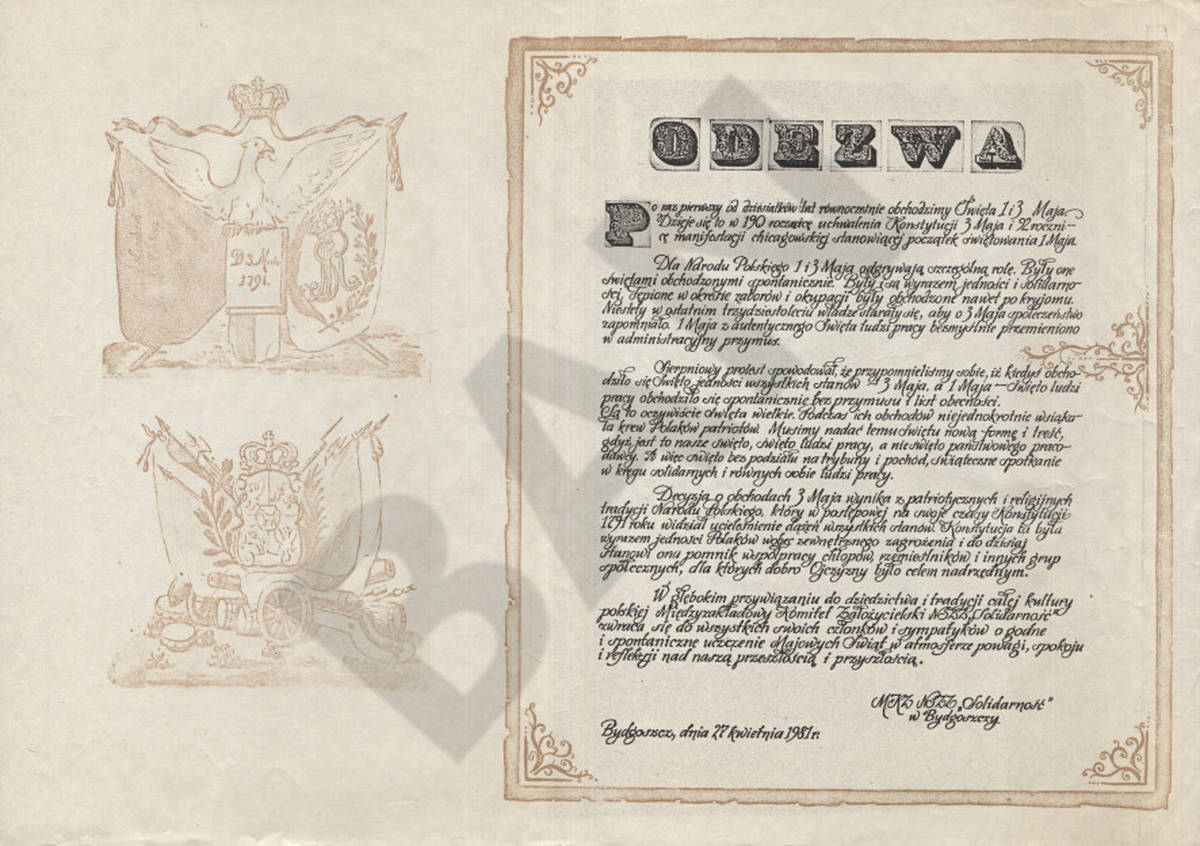 D 3. Maii
1791.
ODEZWA
Po raz pierwszy od dziesiątków lat równocześnie obchodzimy Święta 1 i 3 Maja.
Dzieje się to w 190 rocznicę uchwalenia Konstytucji 3 Maja i 92 roczni-
cę manifestacji chicagowskiej stanowiącej początek świętowania 1 Maja.
Dla Narodu Polskiego 1 i 3 Maja odgrywają szczególną rolę. Były one
świętami obchodzonymi spontanicznie. Były i są wyrazem jedności i solidarno-
ści, tępione w okresie zaborów i okupacji były obchodzone nawet po kryjomu.
Niestety w ostatnim trzydziestoleciu władze starały się, aby o 3 Maja społeczeństwo
zapomniało. 1 Maja z autentycznego święta ludzi pracy bezmyślnie przemieniono
w administracyjny przymus.
Sierpniowy protest spowodował, że przypomnieliśmy sobie, iż kiedyś obcho-
dziło się Święto jedności wszystkich stanów – 3 Maja, a 1 Maja – Święto ludzi
pracy obchodziło się spontanicznie bez przymusu i list obecności.
Są to oczywiście święta wielkie. Podczas ich obchodów niejednokrotnie wsiąka-
ła krew Polaków patriotów. Musimy nadać temu świętu nową formę i treść,
gdyż jest to nasze święto, święto ludzi pracy, a nie święto państwowego praco-
dawcy. A więc święto bez podziału na trybuny i pochód, świąteczne spotkanie
w kręgu solidarnych i równych sobie ludzi pracy.
Decyzja o obchodach 3 Maja wynika z patriotycznych i religijnych
tradycji Narodu Polskiego, który w postępowej na swoje czasy Konstytucji
1791 roku widział ucieleśnienie dążeń wszystkich stanów. Konstytucja ta była
wyrazem jedności Polaków wobec zewnętrznego zagrożenia i do dzisiaj
stanowi ona pomnik współpracy chłopów, rzemieślników i innych grup
społecznych, dla których dobro Ojczyzny było celem nadrzędnym.
W głębokim przywiązaniu do dziedzictwa i tradycji całej kultury
polskiej Międzyzakładowy Komitet Założycielski NSZZ „Solidarność"
zwraca się do wszystkich swoich członków i sympatyków o godne
i spontaniczne uczczenie Majowych Świąt w atmosferze powagi, spokoju
i refleksji nad naszą przeszłością i przyszłością.
MKZ NSZZ „Solidarność"
w Bydgoszczy
Bydgoszcz, dnia 27 kwietnia 1981 r.